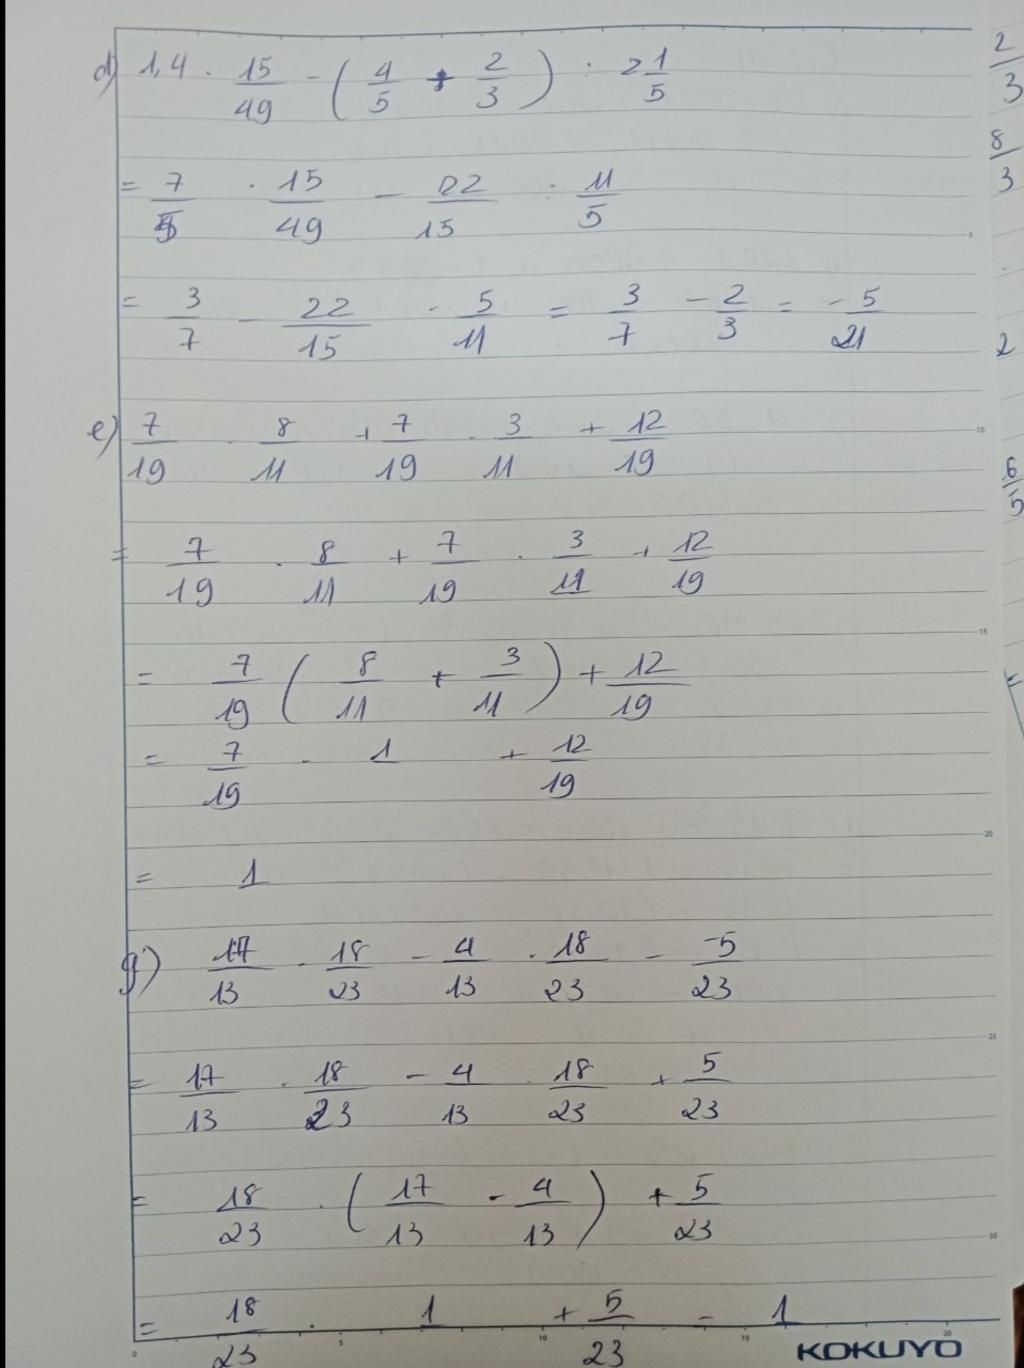 d) 1,4 . 15/49 - ( 4/5 + 2/3 ) : 2 1/5
= 7/5 . 15/49 - 22/15 : 11/5
= 3/7 - 22/15 . 5/11 = 3/7 - 2/3 = -5/21
e) 7/19 . 8/11 + 7/19 . 3/11 + 12/19
= 7/19 . 8/11 + 7/19 . 3/11 + 12/19
= 7/19 ( 8/11 + 3/11 ) + 12/19
= 7/19 . 1 + 12/19
= 1
g) 17/13 . 18/23 - 4/13 . 18/23 - -5/23
= 17/13 . 18/23 - 4/13 . 18/23 + 5/23
= 18/23 . ( 17/13 - 4/13 ) + 5/23
= 18/23 . 1 + 5/23 = 1
KOKUYO
2/3
8/3
2
6/5
=
5
10
15
20
25
30
0 5 10 15 20